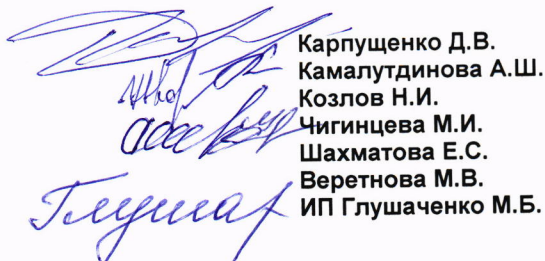 Карпущенко Д.В.
Камалутдинова А.Ш.
Козлов Н.И.
Чигинцева М.И.
Шахматова Е.С.
Веретнова М.В.
ИП Глушаченко М.Б.